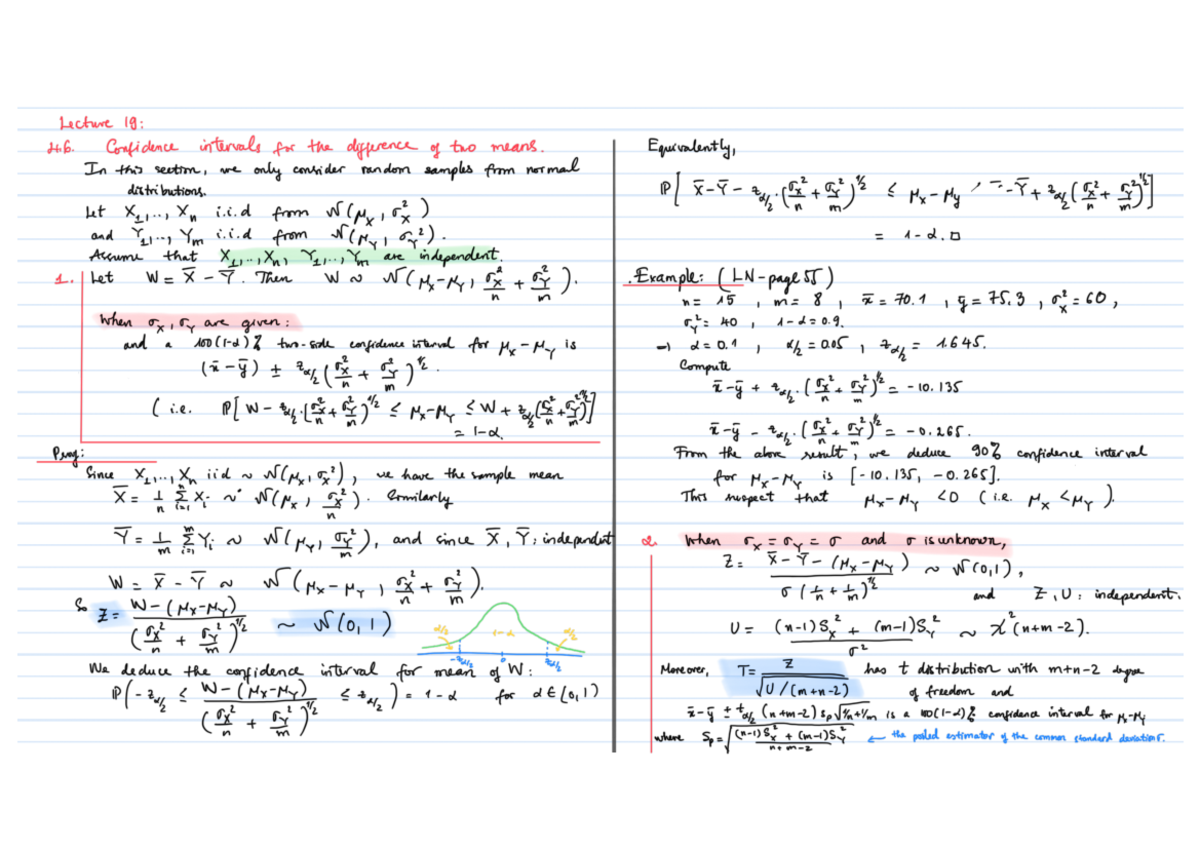 Lecture 19:
4.6. Confidence intervals for the difference of two means.
In this section, we only consider random samples from normal
distributions.
Let X₁,..., Xₙ i.i.d from N(μ_X, σ_X²)
and Y₁,..., Yₘ i.i.d from N(μ_Y, σ_Y²).
Assume that X₁,..., Xₙ, Y₁,..., Yₘ are independent.
1. Let W = X̄ - Ȳ. Then W ~ N(μ_X-μ_Y, σ_X²/n + σ_Y²/m).
When σ_X, σ_Y are given:
and a 100(1-α)% two-side confidence interval for μ_X-μ_Y is
(x̄-ȳ) ± z_{α/2} (σ_X²/n + σ_Y²/m)^{1/2}.
( i.e. ℙ[W - z_{α/2}·(σ_X²/n + σ_Y²/m)^{1/2} ≤ μ_X-μ_Y ≤ W + z_{α/2}(σ_X²/n + σ_Y²/m)^{1/2}]
= 1-α.
Since X₁,..., Xₙ iid ~ N(μ_X, σ_X²), we have the sample mean
X̄ = 1/n Σ_{i=1}^n X_i ~ N(μ_X, σ_X²/n). Similarly
Ȳ = 1/m Σ_{i=1}^m Y_i ~ N(μ_Y, σ_Y²/m), and since X̄, Ȳ: independent
W = X̄ - Ȳ ~ N(μ_X - μ_Y, σ_X²/n + σ_Y²/m).
So Z = (W-(μ_X-μ_Y))/(σ_X²/n + σ_Y²/m)^{1/2} ~ N(0,1)
α/2 1-α α/2
-z_{α/2} 0 z_{α/2}
We deduce the confidence interval for mean of W:
ℙ(-z_{α/2} ≤ (W-(μ_X-μ_Y))/(σ_X²/n + σ_Y²/m)^{1/2} ≤ z_{α/2}) = 1-α for α∈(0,1)
Equivalently,
ℙ[X̄-Ȳ - z_{α/2}·(σ_X²/n + σ_Y²/m)^{1/2} ≤ μ_X-μ_Y -Ȳ + z_{α/2}(σ_X²/n + σ_Y²/m)^{1/2}]
= 1-α. □
.Example: (LN-page 55)
n = 15, m = 8, x̄ = 70.1, ȳ = 75.3, σ_X² = 60,
σ_Y² = 40, 1-α = 0.9.
→ α = 0.1, α/2 = 0.05, z_{α/2} = 1.645.
Compute
x̄-ȳ + z_{α/2}·(σ_X²/n + σ_Y²/m)^{1/2} = -10.135
x̄-ȳ - z_{α/2}·(σ_X²/n + σ_Y²/m)^{1/2} = -0.265.
From the above result, we deduce 90% confidence interval
for μ_X-μ_Y is [-10.135, -0.265].
This suspect that μ_X-μ_Y <0 (i.e. μ_X < μ_Y).
2. When σ_X = σ_Y = σ and σ is unknown,
Z = (X̄-Ȳ-(μ_X-μ_Y))/(σ(1/n + 1/m)^{1/2}) ~ N(0,1),
and Z, U: independent.
U = ((n-1)S_X² + (m-1)S_Y²)/σ² ~ χ²(n+m-2).
Moreover, T = Z/√(U/(m+n-2)) has t distribution with m+n-2 degree
of freedom and
x̄-ȳ ± t_{α/2}(n+m-2) s_p √(1/n+1/m) is a 100(1-α)% confidence interval for μ_X-μ_Y
where S_p = √(((n-1)S_X² + (m-1)S_Y²)/(n+m-2)) ← the pooled estimator of the common standard deviations.